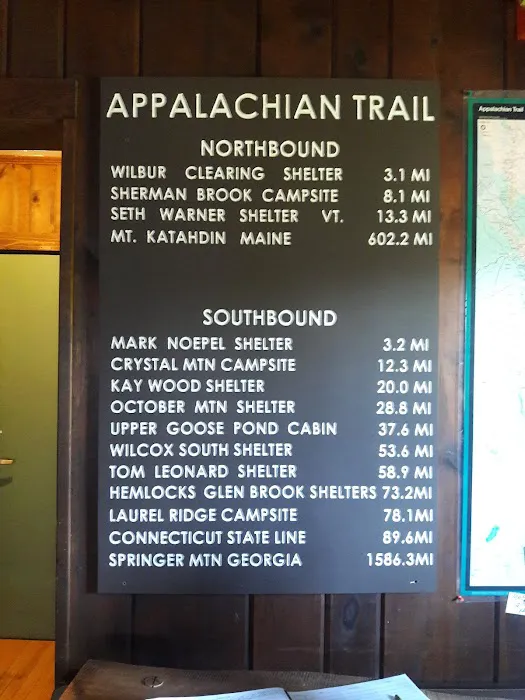 APPALACHIAN TRAIL
NORTHBOUND
WILBUR CLEARING SHELTER 3.1 MI
SHERMAN BROOK CAMPSITE 8.1 MI
SETH WARNER SHELTER VT. 13.3 MI
MT. KATAHDIN MAINE 602.2 MI
SOUTHBOUND
MARK NOEPEL SHELTER 3.2 MI
CRYSTAL MTN CAMPSITE 12.3 MI
KAY WOOD SHELTER 20.0 MI
OCTOBER MTN SHELTER 28.8 MI
UPPER GOOSE POND CABIN 37.6 MI
WILCOX SOUTH SHELTER 53.6 MI
TOM LEONARD SHELTER 58.9 MI
HEMLOCKS GLEN BROOK SHELTERS 73.2MI
LAUREL RIDGE CAMPSITE 78.1MI
CONNECTICUT STATE LINE 89.6MI
SPRINGER MTN GEORGIA 1586.3MI
Appalachian Trail